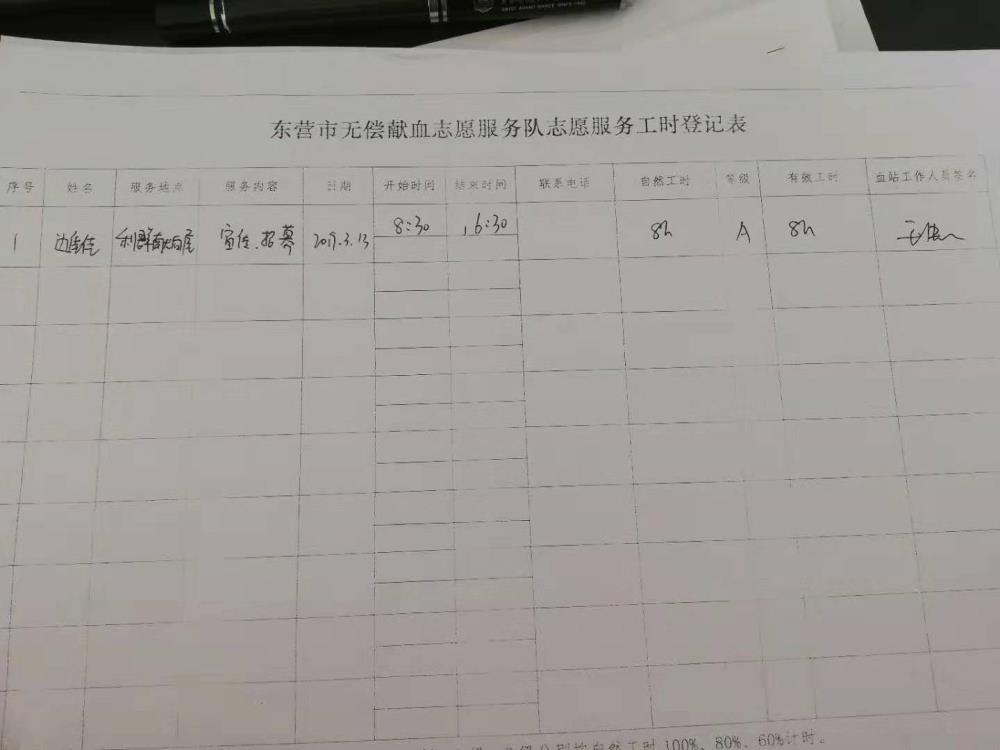 东营市无偿献血志愿服务队志愿服务工时登记表
序号 姓名 服务地点 服务内容 日期 开始时间 结束时间 联系电话 自然工时 等级 有效工时 血站工作人员签名
1 宣传、招募 2019.3.13 8:30 16:30 8h A 8h
分别按自然工时100%、80%、60%计时。